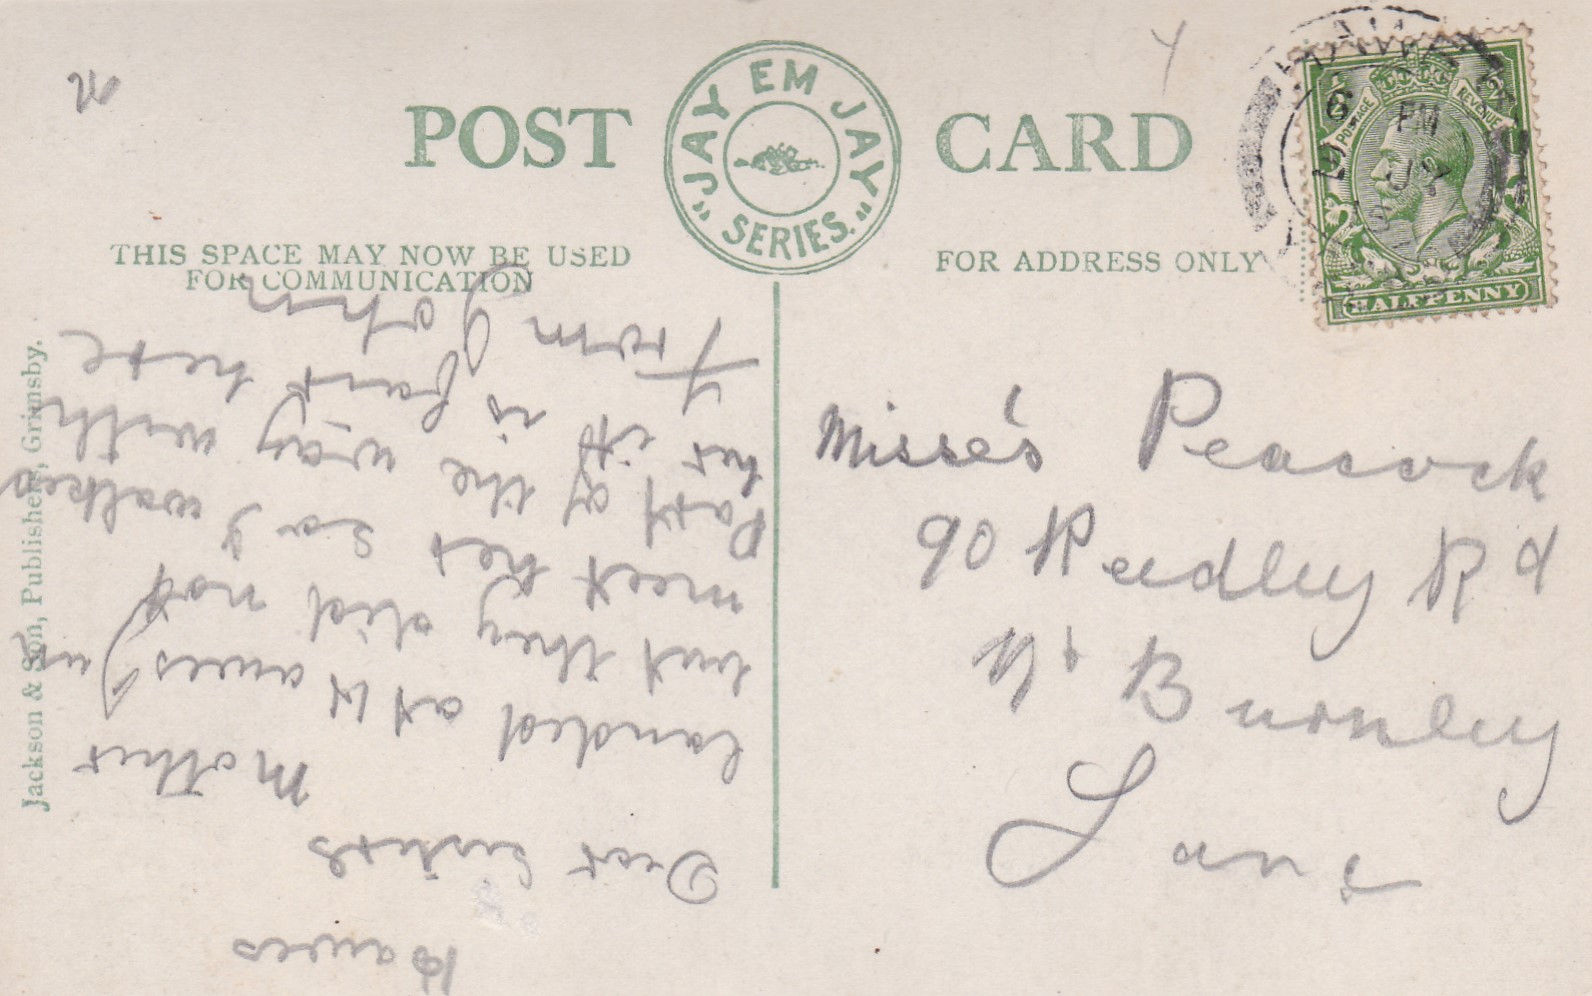 POST CARD
"JAY EM JAY" SERIES.
THIS SPACE MAY NOW BE USED
FOR COMMUNICATION
FOR ADDRESS ONLY
POSTAGE REVENUE
HALFPENNY
PM
Jackson & Son, Publishers, Grimsby.
Hawes
Dear Sisters
Mother
landed at Hawes Jun
but they did not
meet her so I walked
Part of the way with
her it is here
From John
Misse's Peacock
90 Reedley Rd
Nr Burnley
Lanc